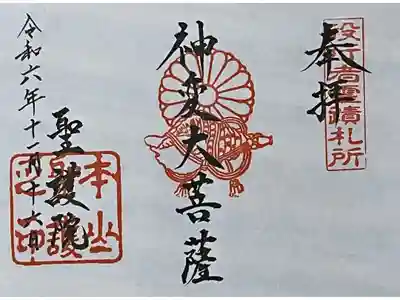 奉拝
役行者霊蹟札所
神変大菩薩
聖護院
令和六年十一月十六日